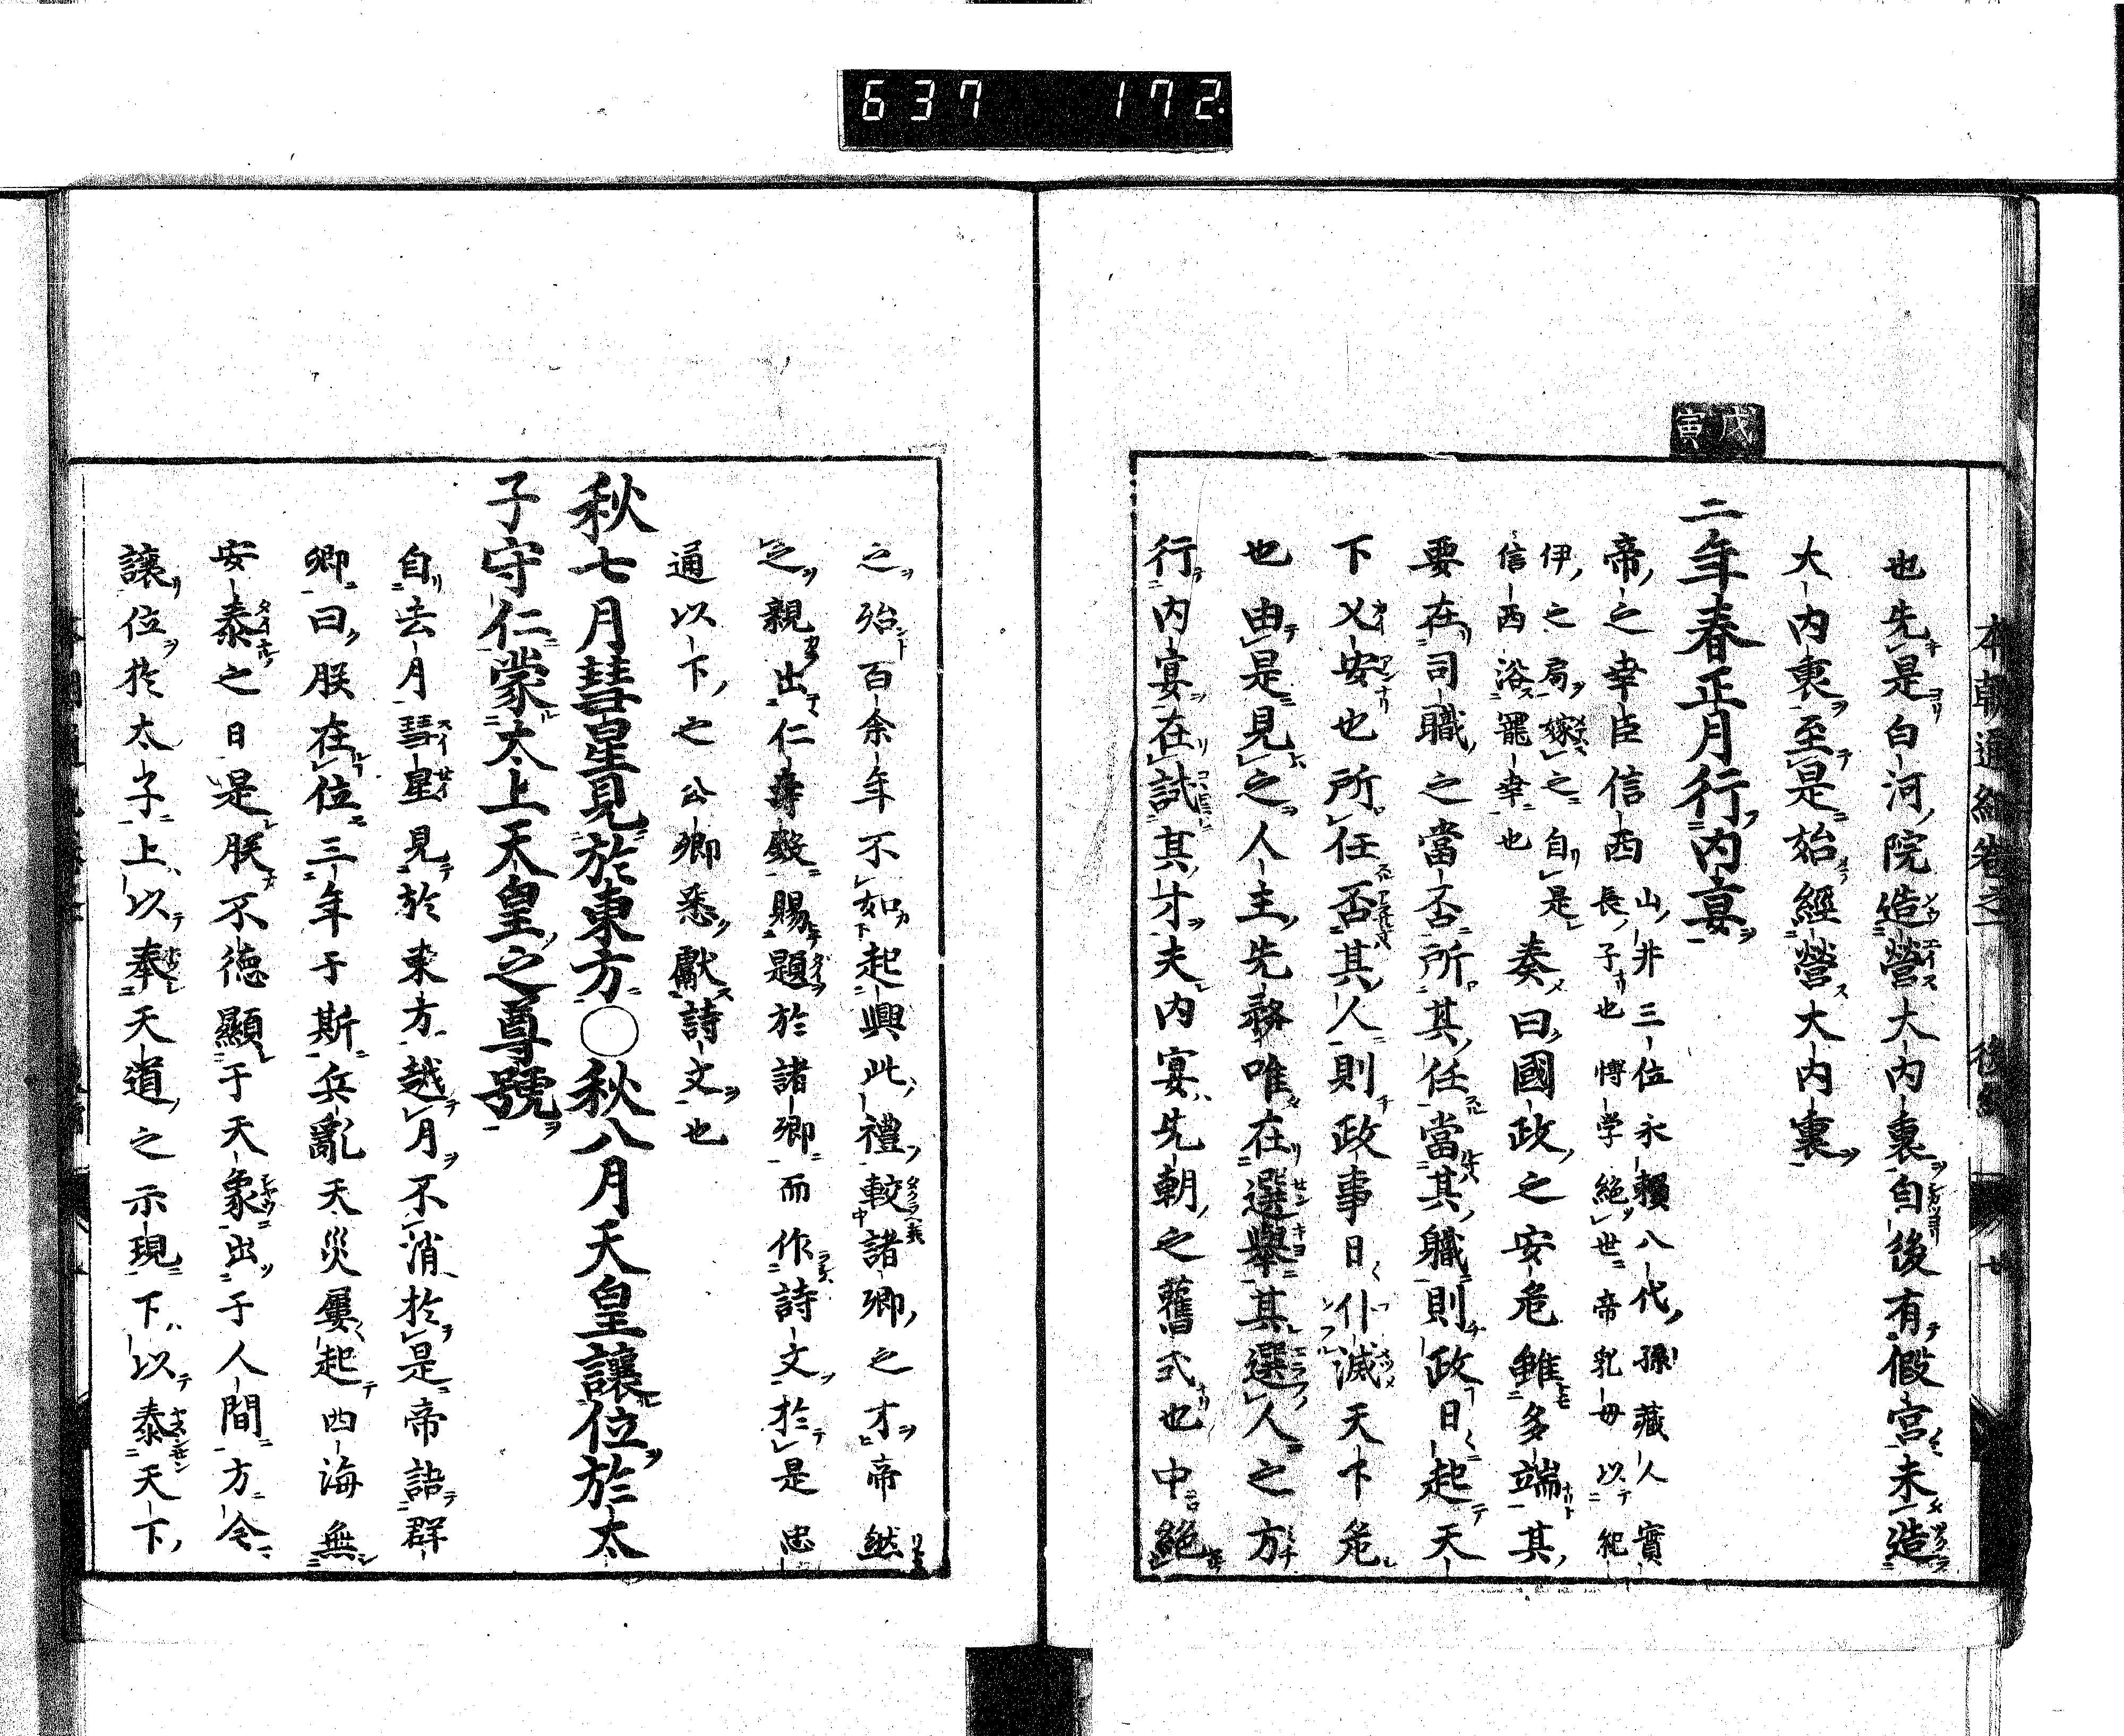 637 172
戊寅
也先是白河院造營大内裏自後有假宮未造
大内裏至是始經營大内裏
二年春正月行内宴
帝之幸臣信西
山井三位永賴八代孫藏人實
長子也博学絶世帝乳母以紀
伊之局嫁之自是
信西浴寵幸也
奏曰國政之安危雖多端其
要在司職之當否所其任當其職則政日起天
下乂安也所任否其人則政事日仆滅天下危
也由是見之人主先務唯在選舉其選人之方
行内宴在試其才夫内宴先朝之舊式也中絶
之殆百余年不如起興此禮較諸卿之才帝然
之親出仁壽殿賜題於諸卿而作詩文於是忠
通以下之公卿悉獻詩文也
秋七月彗星見於東方○秋八月天皇讓位於太
子守仁蒙太上天皇之尊號
自去月彗星見於東方越月不消於是帝詔群
卿曰朕在位三年于斯兵亂天災屢起四海無
安泰之日是朕不德顯于天象出于人間方令
讓位於太子上以奉天道之示現下以泰天下